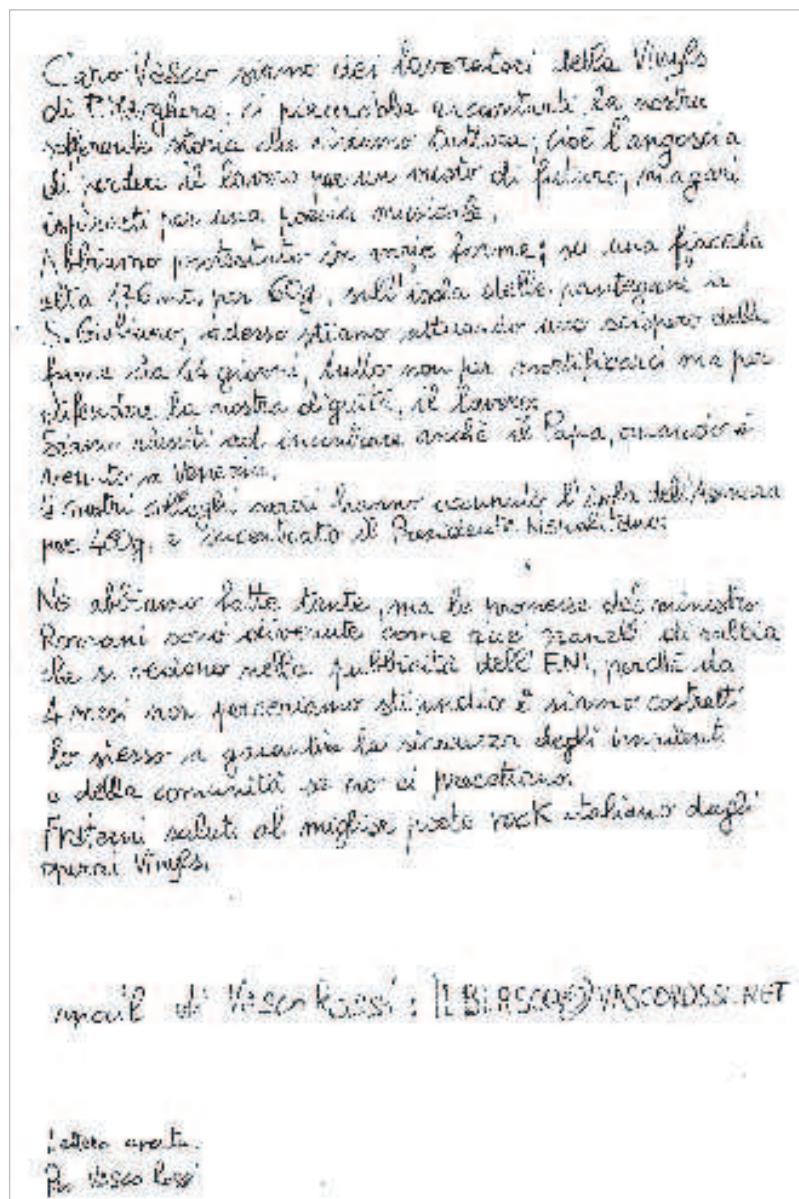 Caro Vasco siamo dei lavoratori della Vinyls
di P. Marghera, ci piacerebbe raccontarti la nostra
sofferente storia che viviamo tuttora, cioè l'angoscia
di perdere il lavoro per un misto di futuro, magari
ispirarti per una poesia musicale.
Abbiamo protestato in varie forme; su una fiaccola
alta 176 mt. per 60g, sull'isola delle pantegane a
S. Giuliano, adesso stiamo attuando uno sciopero della
fame da 44 giorni, tutto non per mortificarci ma per
difendere la nostra dignità, il lavoro.
Siamo riusciti ad incontrare anche il Papa, quando è
venuto a Venezia.
I nostri colleghi sardi hanno occupato l'isola dell'Asinara
per 400g. e incontrato il Presidente Napolitano.
Ne abbiamo fatte tante, ma le promesse del ministro
Romani sono divenute come quei granelli di sabbia
che si vedono nella pubblicità dell'ENI, perché da
4 mesi non percepiamo stipendio e siamo costretti
lo stesso a garantire la sicurezza degli impianti
e della comunità se no ci precettano.
Fraterni saluti al miglior poeta rock italiano dagli
operai Vinyls.
mail di Vasco Rossi: ILBLASCO@VASCOROSSI.NET
Lettera aperta
Per Vasco Rossi